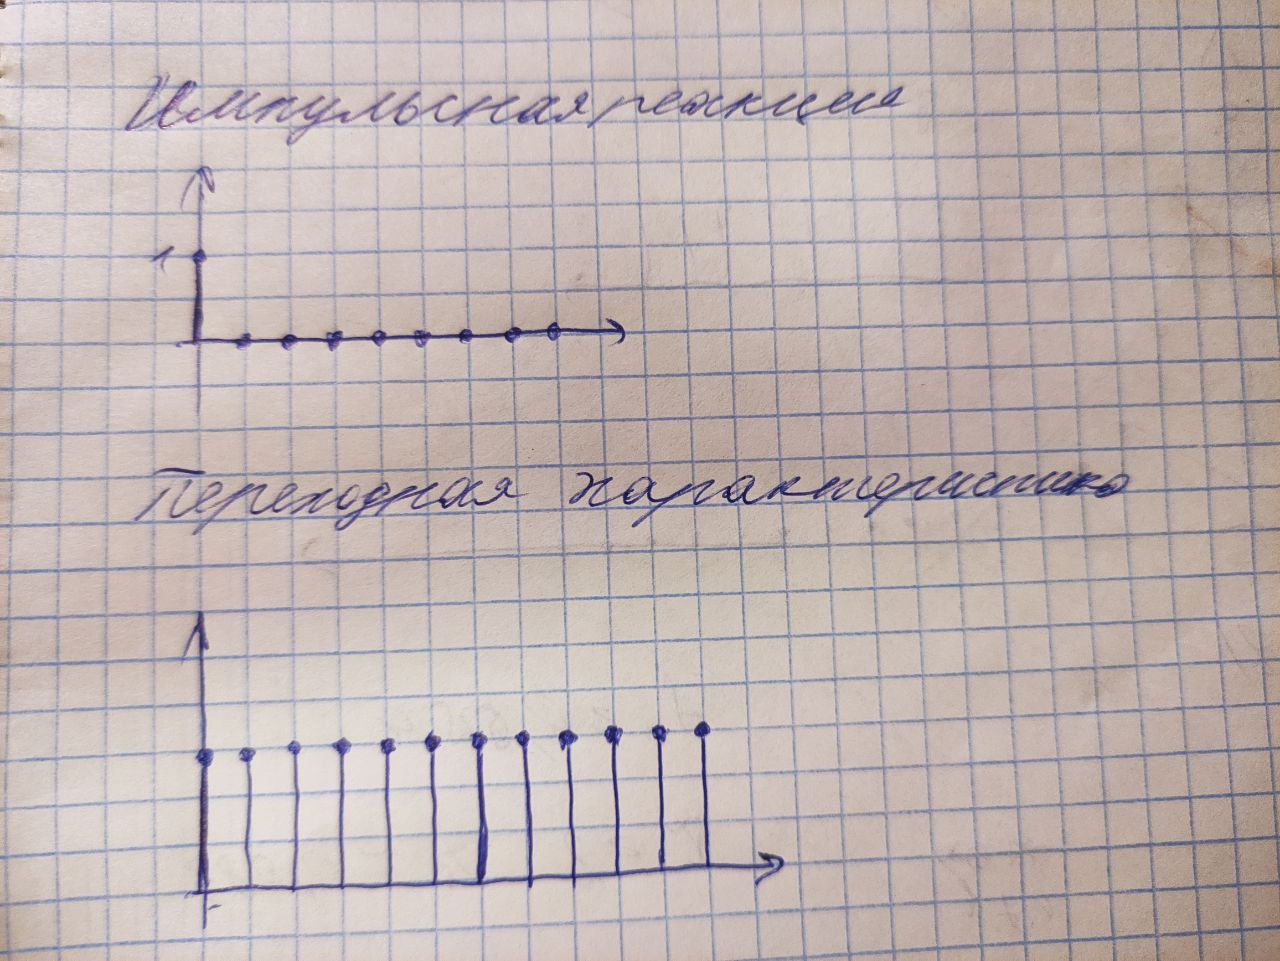 Импульсная реакция
1
Переходная характеристика